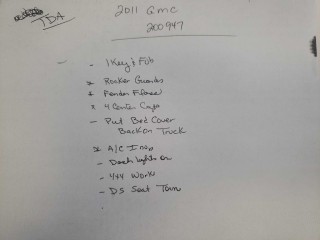 TDA
2011 GMC
200947
- 1 Key & Fob
* Rocker Guards
* Fender Flares
* 4 Center Caps
- Put Bed Cover
Back on Truck
* A/C Inop
- Dash lights on
- 4x4 Works
- DS Seat Torn